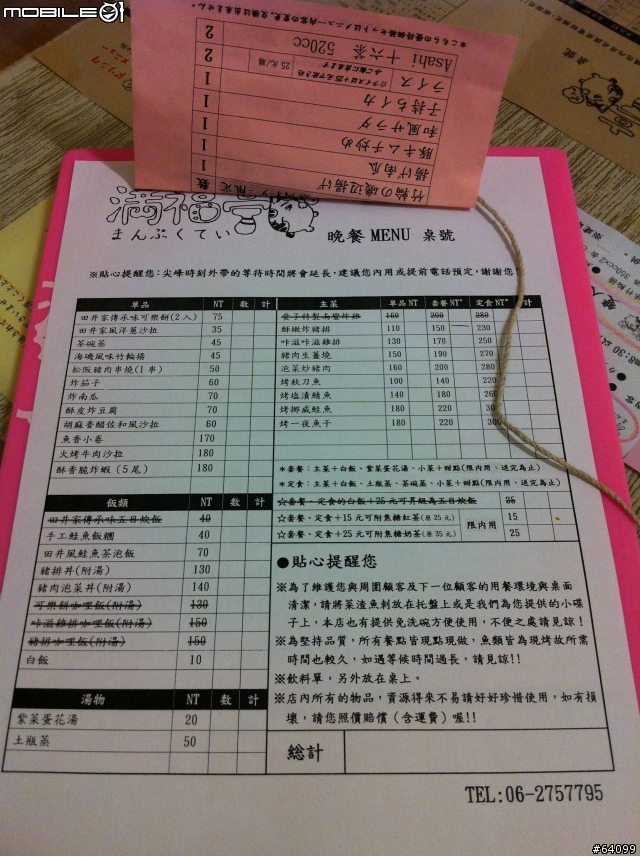 MOBILE01
※こちらの優待価格セットはメニュー内容の変更、交換は出来ません。
Asahi 十六茶 520cc 2
ライス 25元/膳 2
子持ちイカ 1
和風サラダ 1
豚キムチ炒め 1
揚げ南瓜 1
竹輪の磯辺揚げ 1
数
満福亭
まんぷくてい
晚餐 MENU 桌號
※貼心提醒您:尖峰時刻外帶的等待時間將會延長,建議您內用或提前電話預定,謝謝您!
單品 NT 數 計
田井家傳承味可樂餅(2入) 75
田井風洋蔥沙拉 35
茶碗蒸 45
海磯風味竹輪揚 45
松阪豬肉串燒(1串) 50
炸茄子 60
炸南瓜 70
酥皮炸豆腐 70
胡麻香醋佐和風沙拉 60
魚香小卷 170
火烤牛肉沙拉 180
酥香脆炸蝦(5尾) 180
主菜 單品 NT 套餐 NT* 定食 NT*
160 200 280
酥嫩炸豬排 110 150 230
咔滋咔滋雞排 130 170 250
豬肉生薑燒 150 190 270
泡菜炒豬肉 160 200 280
烤秋刀魚 100 140 220
烤塩漬鯖魚 140 180 260
烤挪威鮭魚 180 220
烤一夜魚干 180 220
*套餐:主菜+白飯、紫菜蛋花湯、小菜+甜點(限內用、送完為止)
*定食:主菜+白飯、土瓶蒸、茶碗蒸、小菜+甜點(限內用、送完為止)
☆套餐、定食的白飯+25元可昇級為五目炊飯 25
☆套餐、定食+15元可附焦糖紅茶(原25元) 限內用 15
☆套餐、定食+25元可附焦糖奶茶(原35元) 25
飯類 NT 數 計
田井家傳承味五目炊飯 40
手工鮭魚飯糰 40
田井風鮭魚茶泡飯 70
豬排丼(附湯) 130
豬肉泡菜丼(附湯) 140
可樂餅咖哩飯(附湯) 130
咔滋雞排咖哩飯(附湯) 150
豬排咖哩飯(附湯) 150
白飯 10
湯物 NT 數 計
紫菜蛋花湯 20
土瓶蒸 50
●貼心提醒您
※為了維護您與周圍顧客及下一位顧客的用餐環境與桌面
清潔,請將菜渣魚刺放在托盤上或是我們為您提供的小碟
子上,本店也有提供免洗碗方便使用,不便之處請見諒!
※為堅持品質,所有餐點皆現點現做,魚類皆為現烤故所需
時間也較久,如遇等候時間過長,請見諒!!
※飲料單,另外放在桌上。
※店內所有的物品,資源得來不易請好好珍惜使用,如有損
壞,請您照價賠償(含運費)喔!!
總計
TEL:06-2757795
#64099